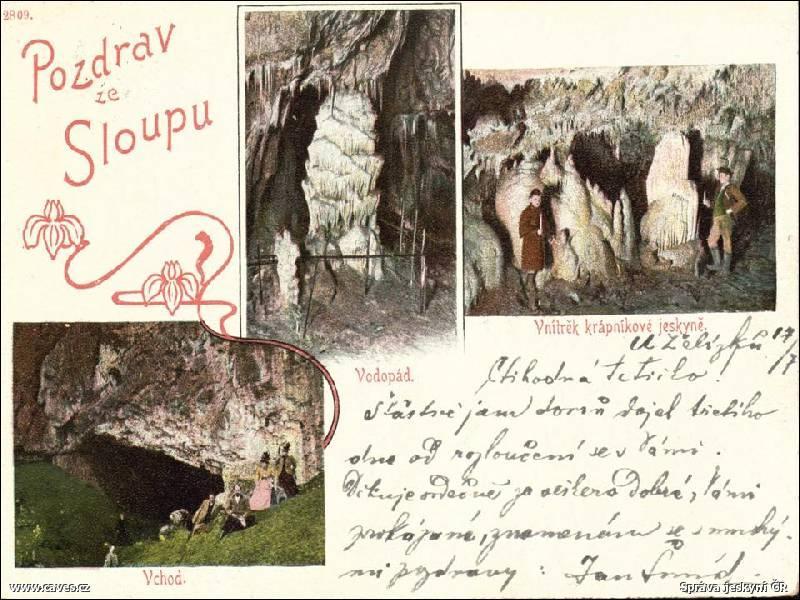 2809.
Pozdrav
ze
Sloupu
Vodopád.
Vnitřek krápníkové jeskyně.
Vchod.
17/7
Ctihodná tetičko.
Šťastně jsem domů dojel třetího
dne od rozloučení se s Vámi.
Děkuje srdečně za dobrá, Vámi
prokázaná, znamenám se s mnohý-
mi pozdravy: Jan
www.caves.cz
Správa jeskyní ČR